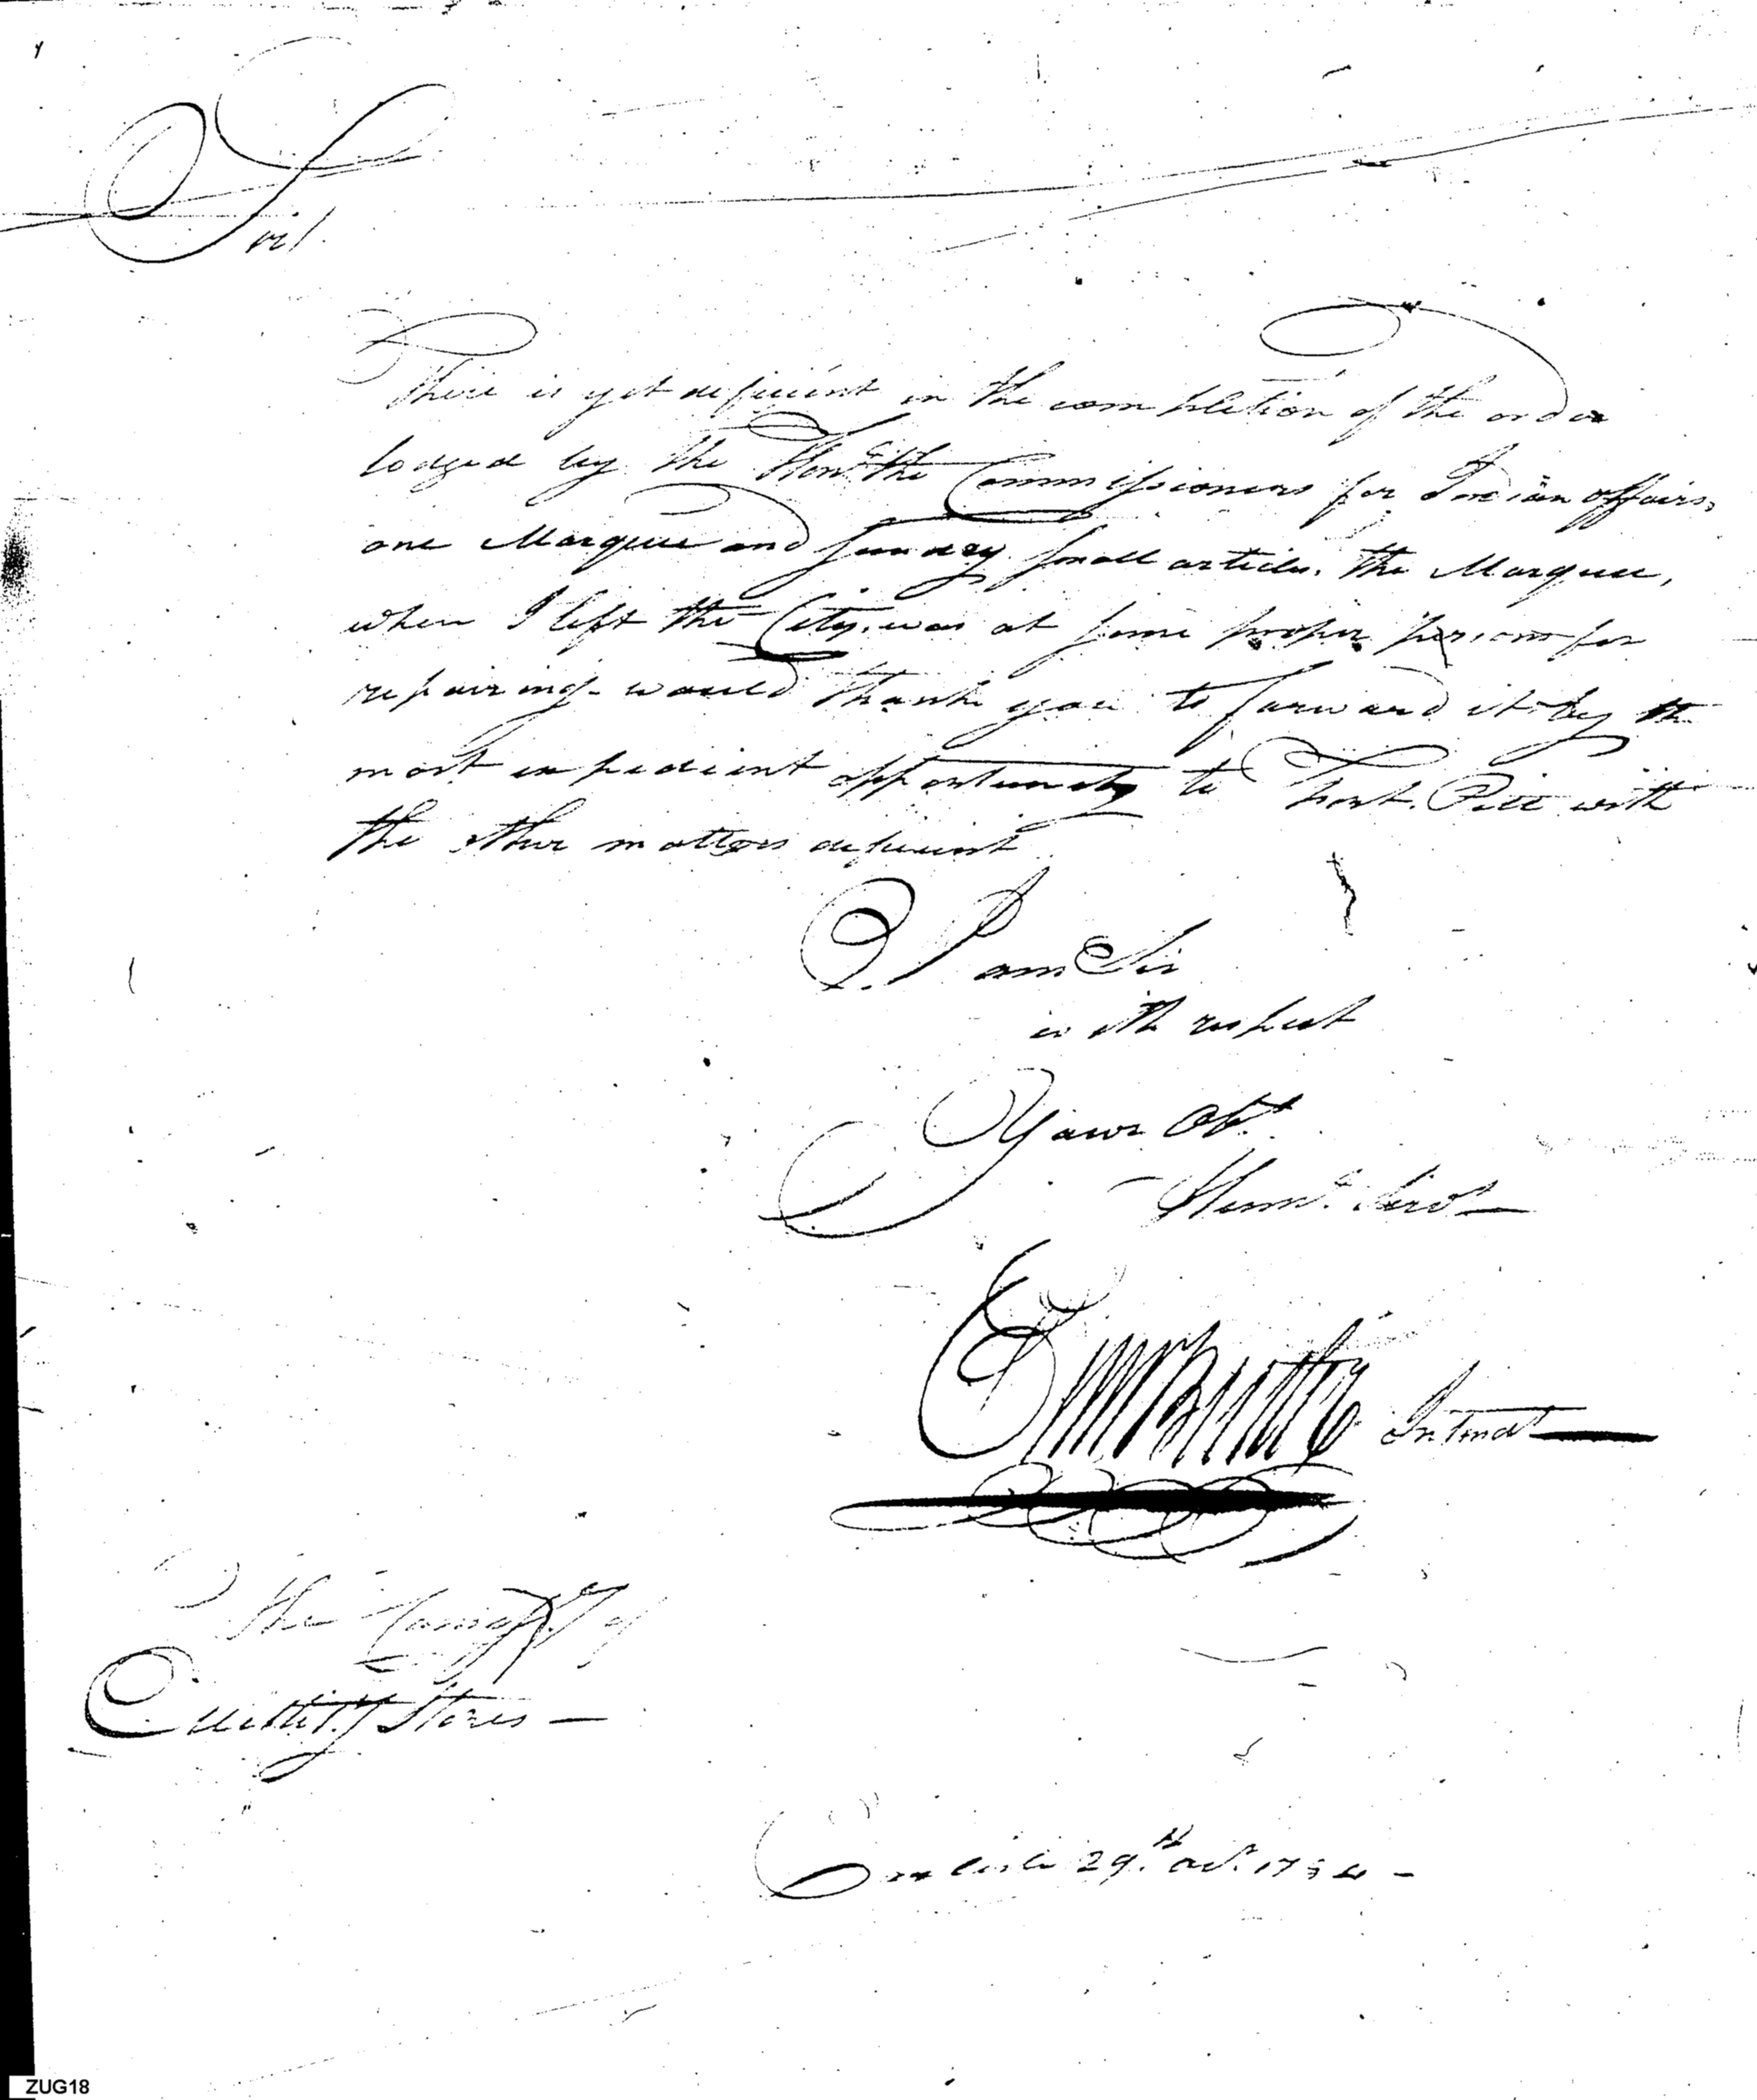 Sir/.
There is yet deficient in the completion of the order
lodged by the Honble the Commissioners for Indian affairs,
one Marquee and sundry small articles. The Marquee,
when I left the City, was at some proper persons for
repairing - would thank you to forward it by the
most expedient opportunity to Fort Pitt with
the other matters deficient
I am Sir
with respect
Your Obt
Humb Servt
Wm Butler
The Comissy of
Military Stores
Carlisle 29th Octr 1784
ZUG18